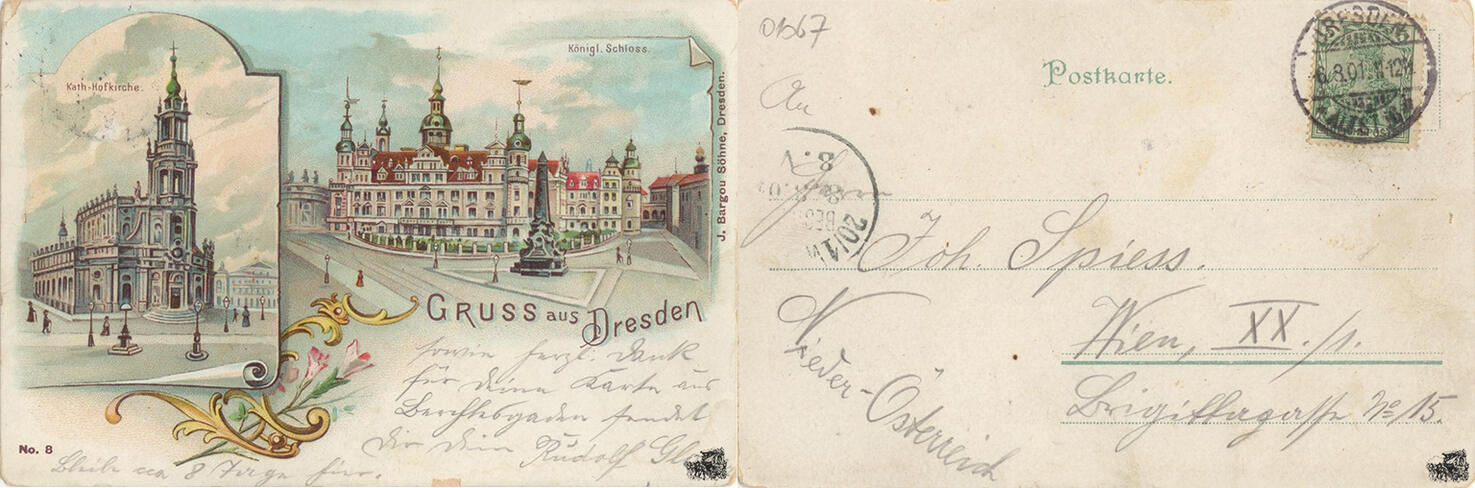 Kath-Hofkirche.
Königl. Schloss.
J. Bargou Söhne, Dresden.
GRUSS aus Dresden
sowie herzl. Dank
für Deine Karte aus
Berchtesgaden sendet
Dir Dein Rudolf
No. 8
Bleibe ca 8 Tage hier.
01567
Postkarte.
DRESDEN
6.8.01.
An
Herrn
8.V
20/1
Joh. Spiess.
Wien, XX./1.
Brigittagasse No 15.
Nieder-Österreich